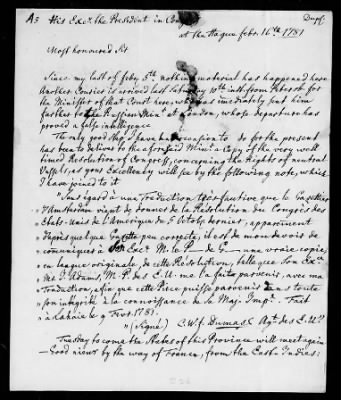 As His Exc.y the President in Congr
Dupl.
at the Hague febr. 16.th 1781
Most honoured Sir
Since my last of feby 5.th nothing material has happened here
Another Courier is arrived last Saturday 10.th inst. from Petersb. for
the Minister of that Court here, who has immediately put him
farther to the Russian Min.r at London, whose departure has
proved a false intelligence
The only good I have had occasion to do for the present
has been to deliver to the aforesaid Min.r a Copy of the very well
timed Resolution of Congress, concerning the Rights of neutral
Vessels, as your Excellency will see by the following note, which
I have joined to it
„ Eu égard à une Traduction très fautive que le Gazettier
„ d'Amsterdam vient de donner de la Résolution du Congrès des
„ Etats-Unis de l'Amérique du 5 8bre dernier, apparemment
„ d'après quelque Gazette peu correcte, il est de mon devoir de
„ communiquer à Son Exc. M. le P— de G— une vraie copie,
„ en langue originale, de cette Résolution, telle que Son Exc.
„ Mr J. Adams, M. P. des E. U. me l'a fait parvenir, avec ma
„ Traduction, afin que cette Piece puisse parvenir dans toute
„ son intégrité à la connoissance de Sa Maj. Imp.e Fait
„ à Lahaie le 9 Fevr. 1781.
„ (Signé) C. W. f. Dumas Ag.t des E. U.
Tuesday to come the States of this Province will meet again
— Good news by the way of France, from the East-Indies: